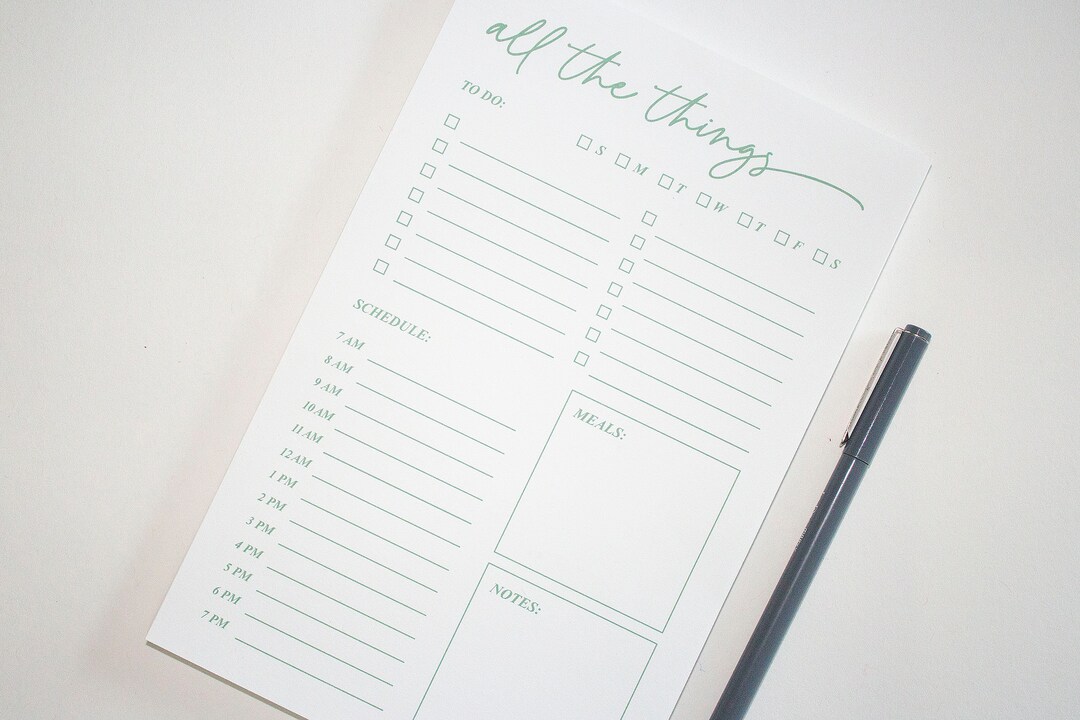 all the things
TO DO:
S M T W T F S
SCHEDULE:
7 AM
8 AM
9 AM
10 AM
11 AM
12 AM
1 PM
2 PM
3 PM
4 PM
5 PM
6 PM
7 PM
MEALS:
NOTES: